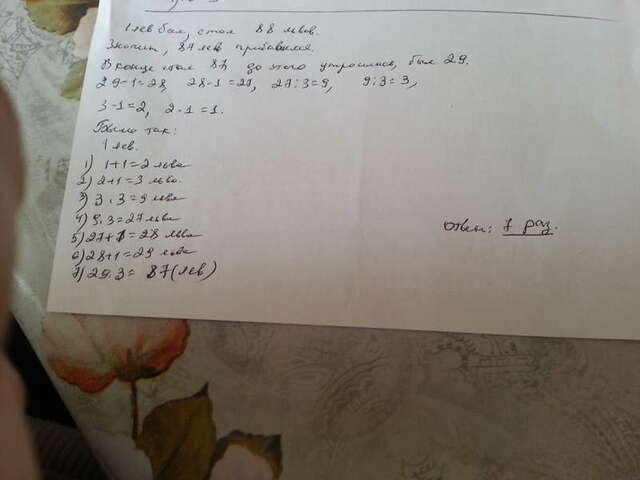 1 лев был, стал 88 львов.
Значит, 87 лев прибавился.
В конце стал 87, до этого утроились, был 29.
29-1=28, 28-1=27, 27:3=9, 9:3=3,
3-1=2, 2-1=1.
Было так:
1 лев.
1) 1+1=2 льва
2) 2+1=3 льва.
3) 3·3=9 львов
4) 9·3=27 львов
5) 27+1=28 львов
6) 28+1=29 львов
7) 29·3=87 (лев)
Ответ: 7 раз.